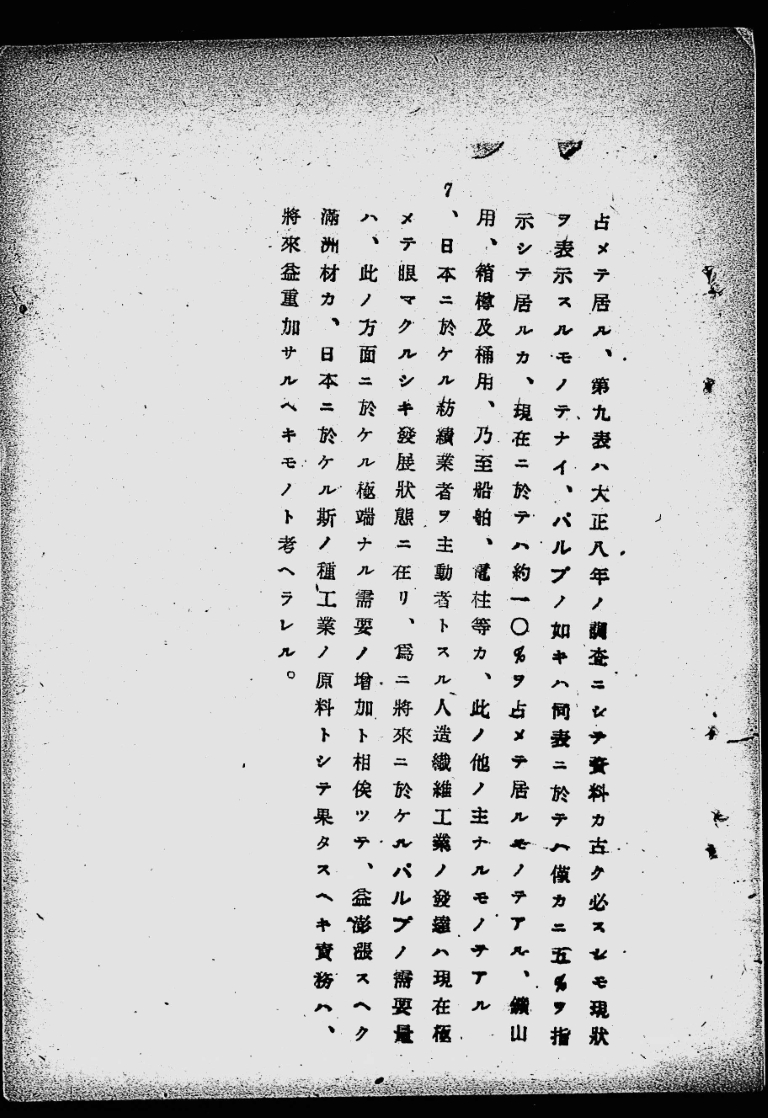 占メテ居ル、第九表ハ大正八年ノ調査ニシテ資料カ古ク必スレモ現狀
ヲ表示スルモノテナイ、パルプノ如キハ同表ニ於テハ僅カニ五%ヲ指
示シテ居ルカ、現在ニ於テハ約一〇%ヲ占メテ居ルモノテアル、鑛山
用、箱樽及桶用、乃至船舶、電柱等カ、此ノ他ノ主ナルモノテアル
7、日本ニ於ケル紡績業者ヲ主動者トスル人造纖維工業ノ發達ハ現在極
メテ眼マクルシキ發展狀態ニ在リ、爲ニ將來ニ於ケルパルプノ需要量
ハ、此ノ方面ニ於ケル極端ナル需要ノ增加ト相俟ツテ、益澎漲スヘク
滿洲材カ、日本ニ於ケル斯ノ種工業ノ原料トシテ果タスヘキ責務ハ、
將來益重加サルヘキモノト考ヘラレル。